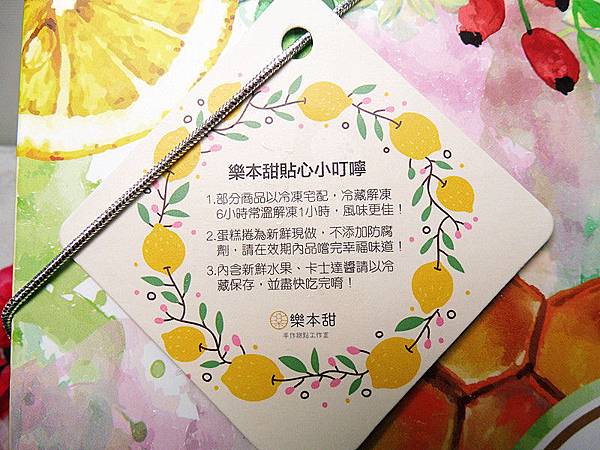 樂本甜貼心小叮嚀
1.部分商品以冷凍宅配，冷藏解凍
6小時常溫解凍1小時，風味更佳！
2.蛋糕捲為新鮮現做，不添加防腐
劑，請在效期內品嚐完幸福味道！
3.內含新鮮水果、卡士達醬請以冷
藏保存，並盡快吃完唷！
樂本甜
手作甜點工作室